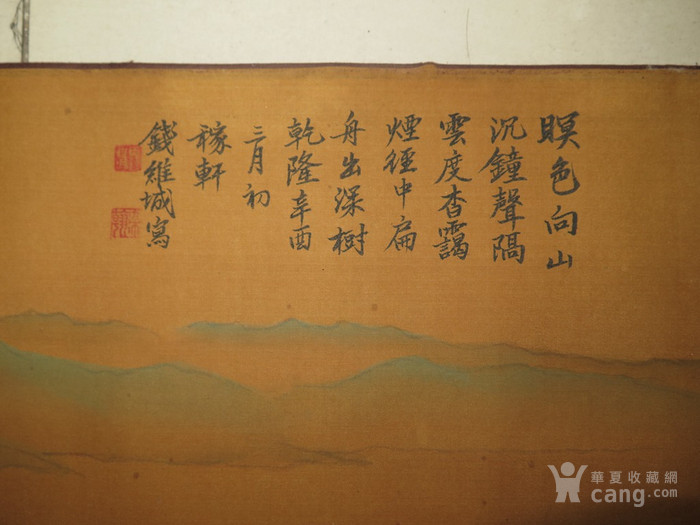 暝色向山
沉鐘聲隔
雲度杳靄
煙徑中扁
舟出深樹
乾隆辛酉
三月初
稼軒
錢維城寫
華夏收藏網
cang.com